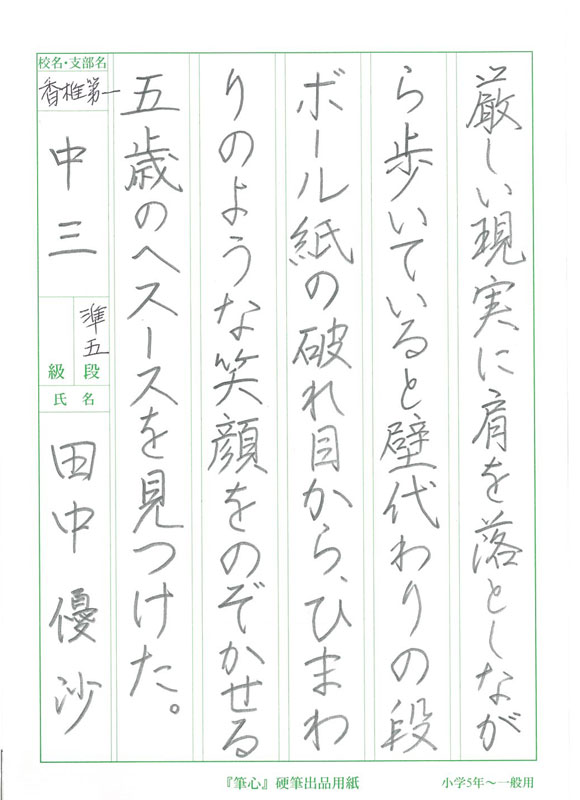 厳しい現実に肩を落としなが
ら歩いていると壁代わりの段
ボール紙の破れ目から、ひまわ
りのような笑顔をのぞかせる
五歳のヘスースを見つけた。
校名・支部名
香椎第一
中三
準五
段
級
氏名
田中優沙
『筆心』硬筆出品用紙
小学5年～一般用